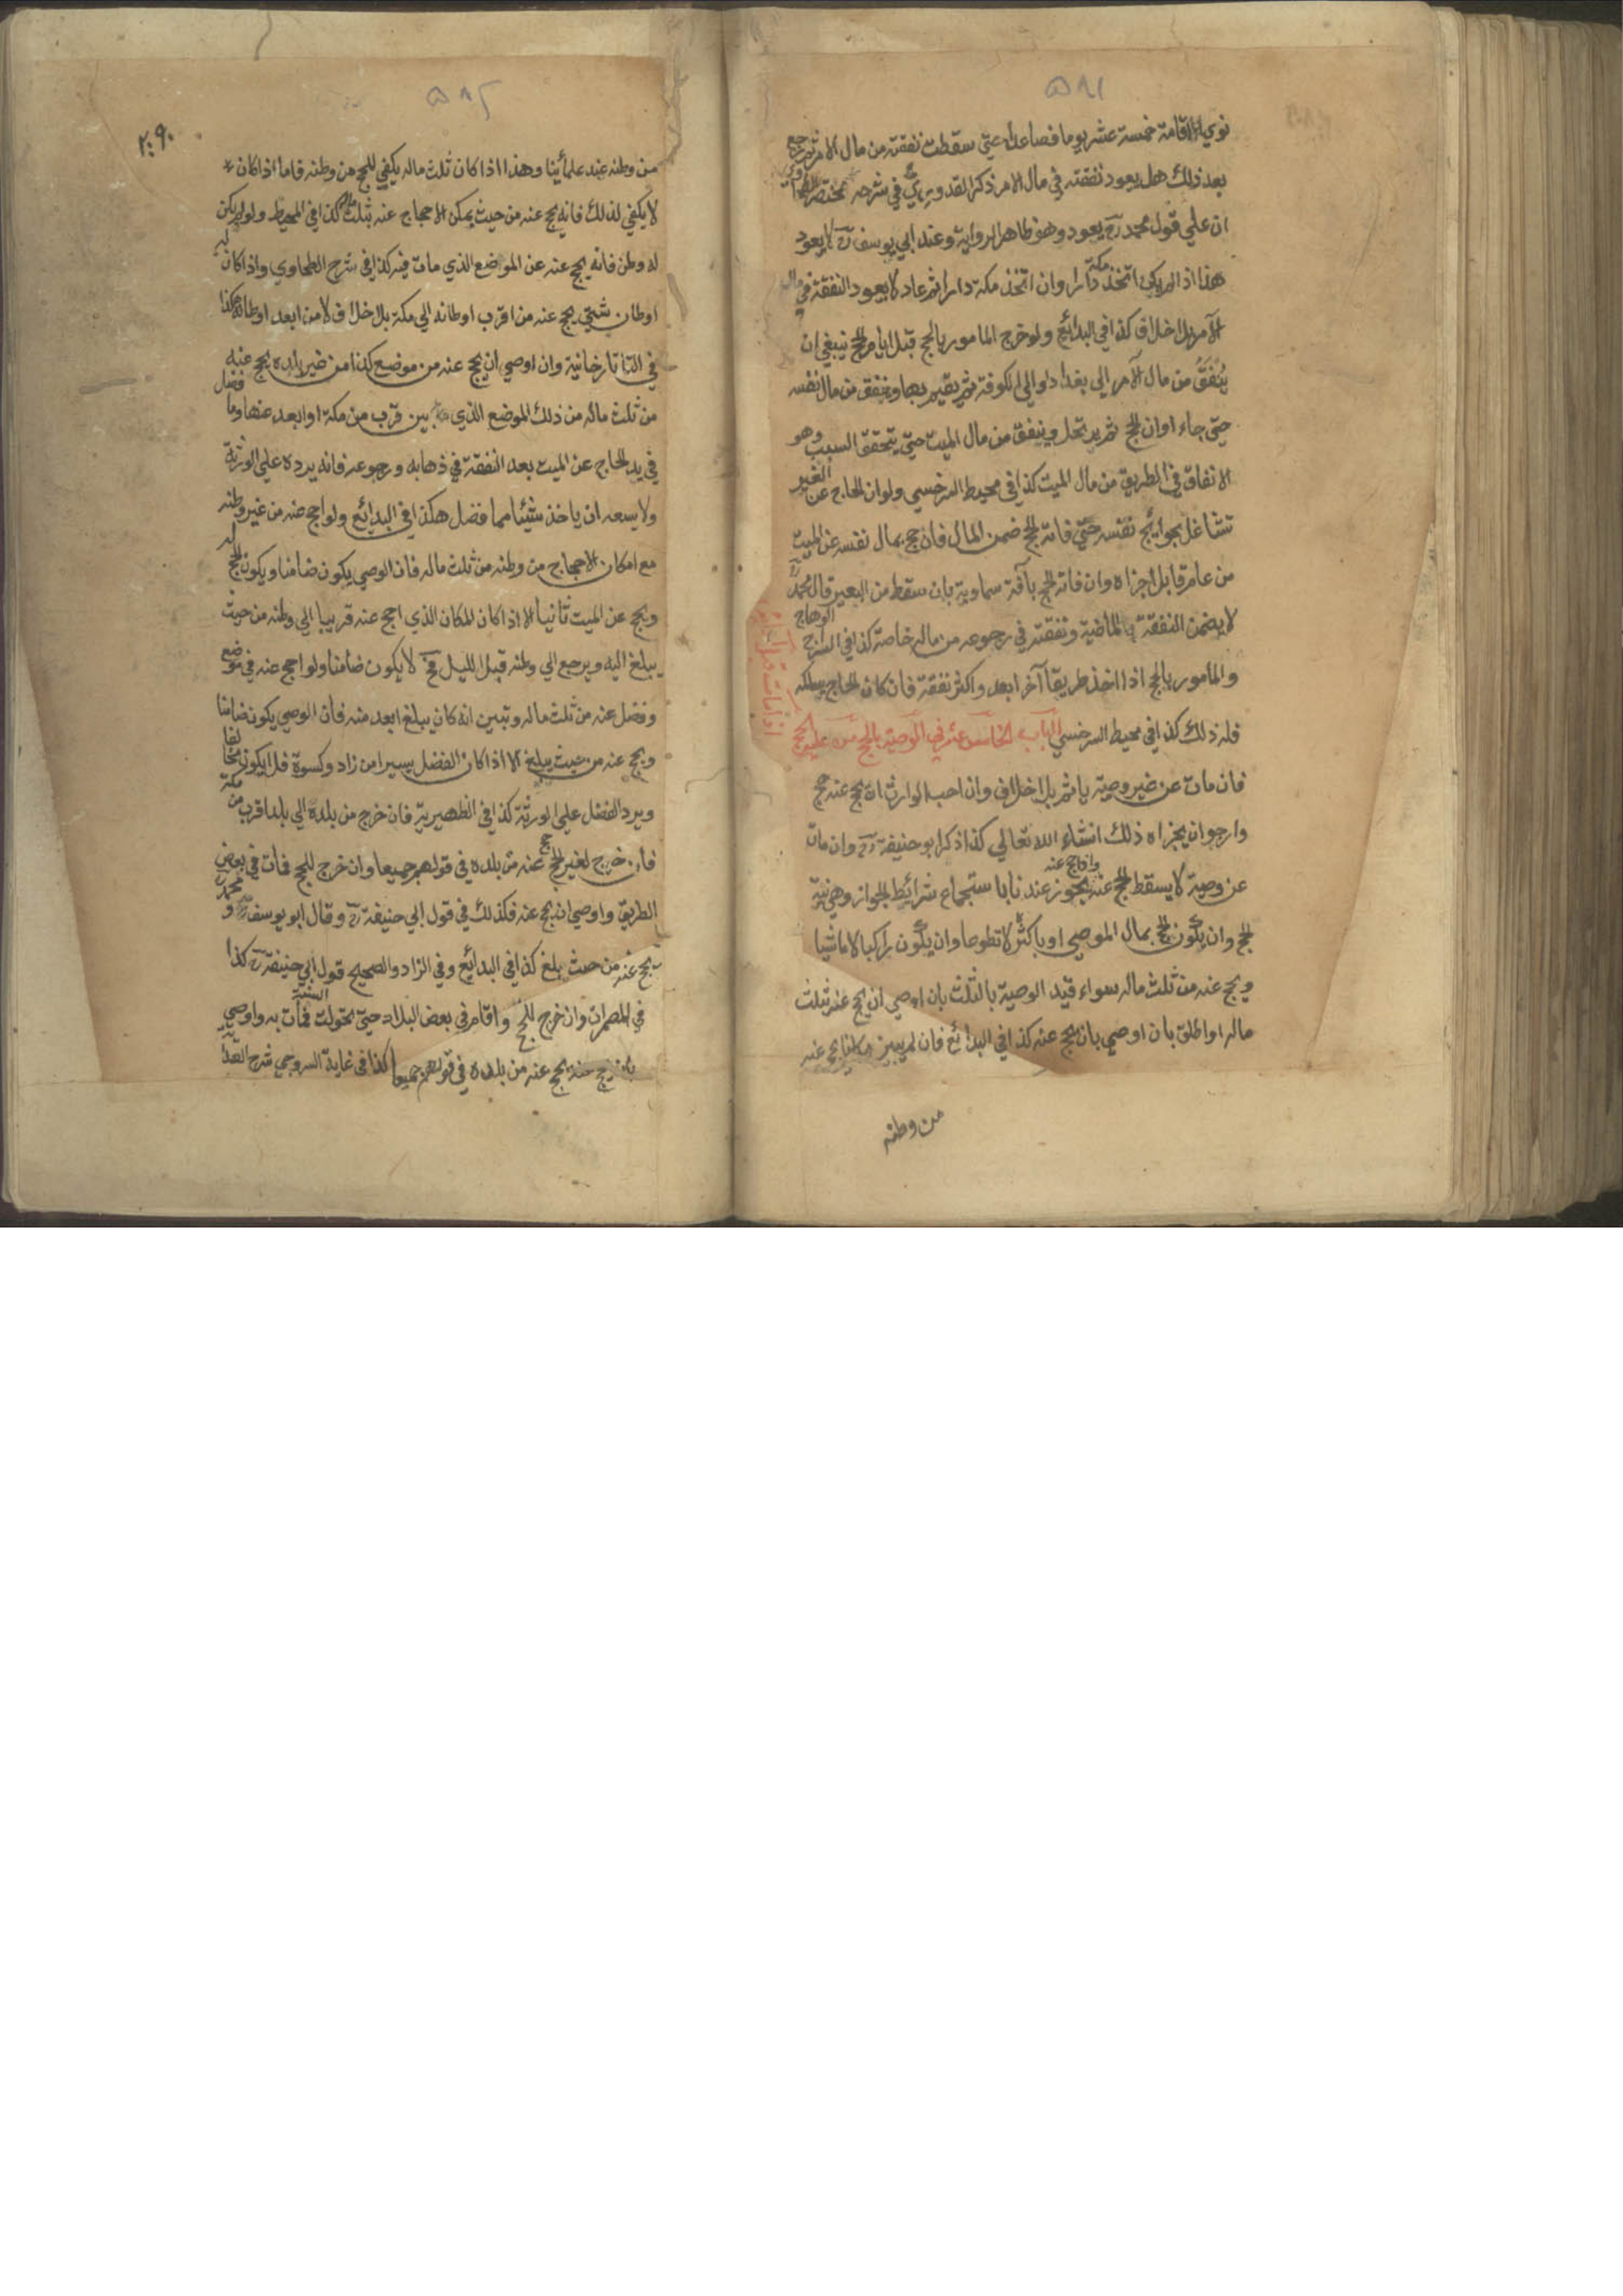 ٥٨١
نوي الاقامة خمسة عشر يوما فصاعدا حتي سقطت نفقته من مال الامر ثم رجع
بعد ذلك هل يعود نفقته في مال الامر ذكر القدوري في شرحه مختصر الطحاوي
ان علي قول محمد رح يعود وهو ظاهر الرواية وعند ابي يوسف رح لا يعود
هذا اذا لم يكن اتخذ مكة دارا وان اتخذ مكة دارا ثم عاد لا يعود النفقة في مال
الآمر بلا خلاف كذا في البدائع ولو خرج المامور بالحج قبل ايام الحج ينبغي ان
يُنْفَقُ من مال الآمر الي بغداد او الي الكوفة ثم يقيم بها وينفق من مال نفسه
حتي جاء اوان الحج ثم يرتحل وينفق من مال الميت حتي يتحقق السبب وهو
الانفاق في الطريق من مال الميت كذا في محيط السرخسي ولو ان الحاج عن الغير
تشاغل بحوائج نفسه حتي فاته الحج ضمن المال فان حج بمال نفسه عن الميت
من عام قابل اجزاه وان فاته الحج بآفة سماوية بان سقط من البعير قال محمد رح
لا يضمن النفقة الماضية ونفقته في رجوعه من ماله خاصة كذا في السراج الوهاج
والمأمور بالحج اذا اخذ طريقا آخر ابعد واكثر نفقة فان كان الحاج يسلكه
فله ذلك كذا في محيط السرخسي الباب الخامس عشر في الوصية بالحج من عليه الحج
اذا مات قبل
فان مات عن غير وصية يأثم بلا خلاف وان احب الوارث ان يحج عنه حج
وارجو ان يجزاه ذلك انشاء الله تعالي كذا ذكر ابو حنيفة رح وان مات
عن وصية لا يسقط الحج عنه واذا حج عنه يجوز عندنا باستجماع شرائط الجواز وهي نية
الحج وان يكون الحج بمال الموصي او باكثره لا تطوعا وان يكون راكبا لا ماشيا
ويحج عنه من ثلث ماله سواء قيد الوصية بالثلث بان اوصي ان يحج عنه بثلث
ماله او اطلق بان اوصي بان يحج عنه كذا في البدائع فان لم يبين مكانا يحج عنه
من وطنه
٥٨٢
٢٠٩٠
من وطنه عند علمائنا وهذا اذا كان ثلث ماله يكفي للحج من وطنه فاما اذا كان
لا يكفي لذلك فانه يحج عنه من حيث يمكن الاحجاج عنه بثلث ماله كذا في المحيط ولو لم يكن
له وطن فانه يحج عنه عن الموضع الذي مات فيه كذا في شرح الطحاوي واذا كان له
اوطان شتي يحج عنه من اقرب اوطانه الي مكة بلا خلاف لا من ابعد اوطانه هكذا
في التاتارخانية وان اوصي ان يحج عنه من موضع كذا من غير بلده يحج عنه
من ثلث ماله من ذلك الموضع الذي بين قرب من مكة او ابعد عنها وما فضل
في يد الحاج عن الميت بعد النفقة في ذهابه ورجوعه فانه يرده علي الورثة
ولا يسعه ان ياخذ شيئا مما فضل هكذا في البدائع ولو احج عنه من غير وطنه
مع امكان الاحجاج من وطنه من ثلث ماله فان الوصي يكون ضامنا ويكون الحج له
ويحج عن الميت ثانيا الا اذا كان المكان الذي احج عنه قريبا الي وطنه من حيث
يبلغ اليه ويرجع الي وطنه قبل الليل فح لا يكون ضامنا ولو احج عنه في موضع
وفضل عنه من ثلث ماله وتبين انه كان يبلغ ابعد منه فان الوصي يكون ضامنا
ويحج عنه من حيث يبلغ الا اذا كان الفضل يسيرا من زاد وكسوة فلا يكون مخالفا
ويرد الفضل علي الورثة كذا في الظهيرية فان خرج من بلده الي بلد اقرب من مكة
فان خرج لغير الحج حج عنه من بلده في قولهم جميعا وان خرج للحج فمات في بعض
الطريق واوصي ان يحج عنه فكذلك في قول ابي حنيفة رح وقال ابو يوسف رح و محمد رح
يحج عنه من حيث بلغ كذا في البدائع وفي الزاد والصحيح قول ابي حنيفة رح كذا
في المضمرات وان خرج للحج واقام في بعض البلاد حتي تحولت السنة فمات به واوصي
بان يحج عنه يحج عنه من بلده في قولهم جميعا كذا في غاية السروجي شرح الهداية